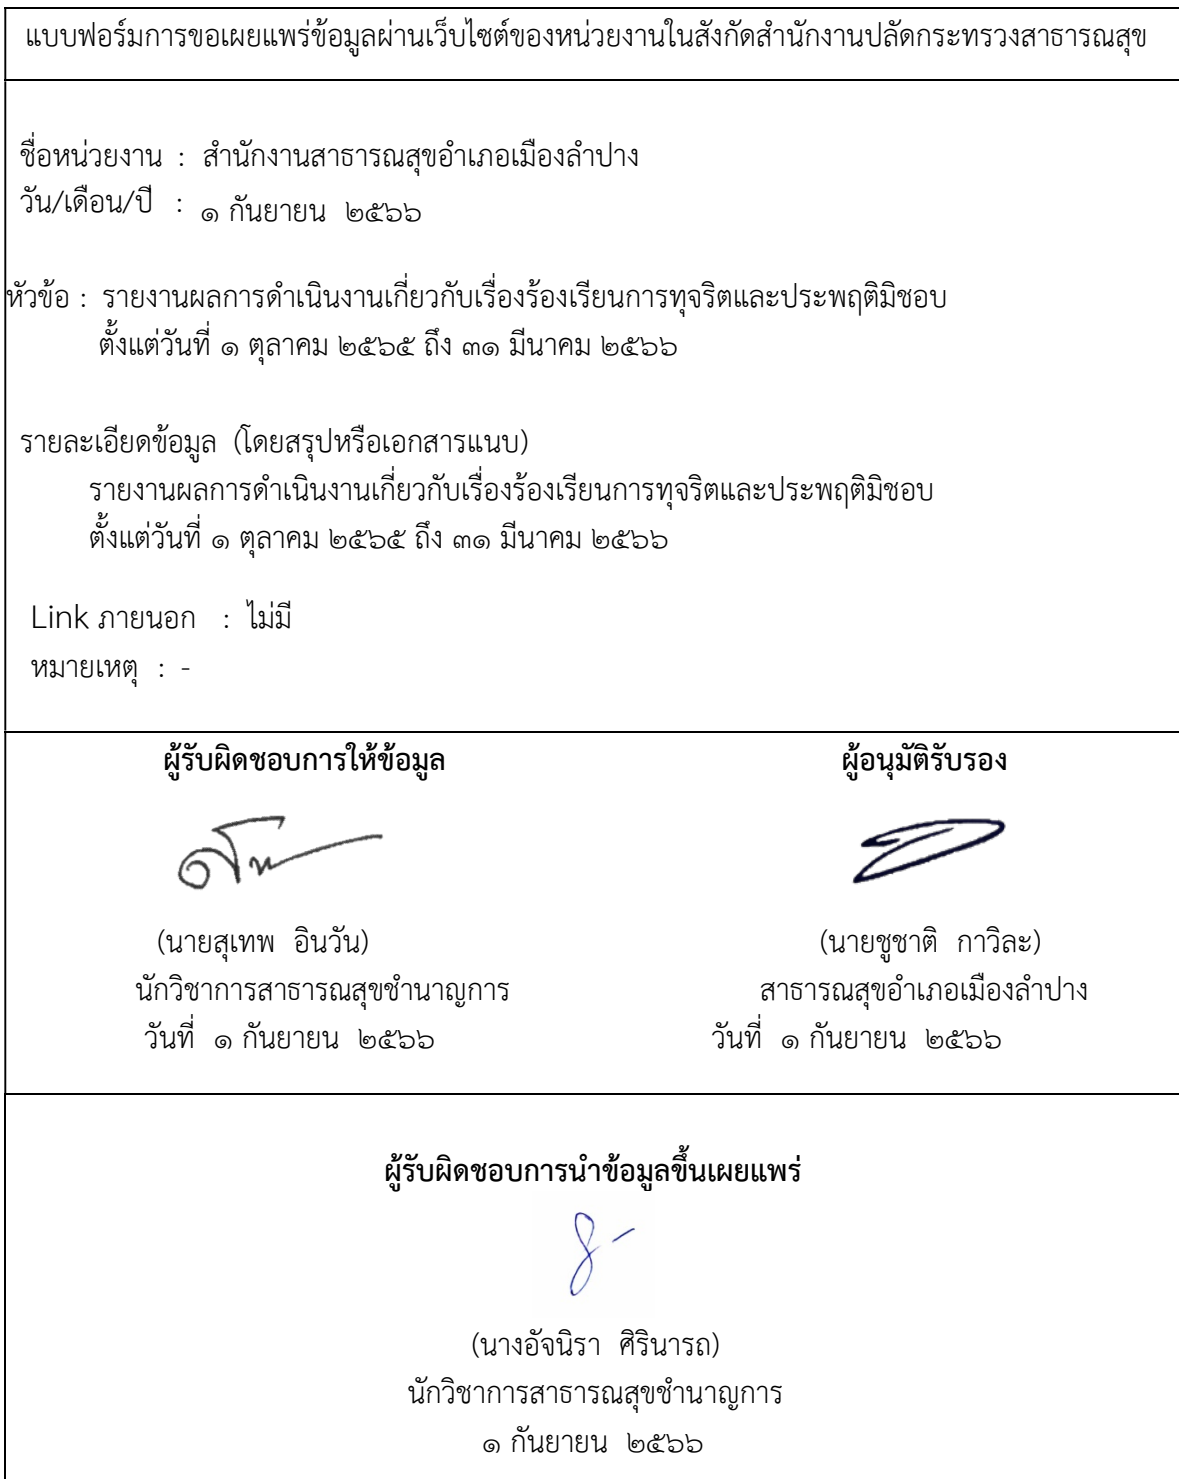 แบบฟอร์มการขอเผยแพร่ข้อมูลผ่านเว็บไซต์ของหน่วยงานในสังกัดสำนักงานปลัดกระทรวงสาธารณสุข
ชื่อหน่วยงาน : สำนักงานสาธารณสุขอำเภอเมืองลำปาง
วัน/เดือน/ปี : ๑ กันยายน ๒๕๖๖
หัวข้อ : รายงานผลการดำเนินงานเกี่ยวกับเรื่องร้องเรียนการทุจริตและประพฤติมิชอบ
ตั้งแต่วันที่ ๑ ตุลาคม ๒๕๖๕ ถึง ๓๑ มีนาคม ๒๕๖๖
รายละเอียดข้อมูล (โดยสรุปหรือเอกสารแนบ)
รายงานผลการดำเนินงานเกี่ยวกับเรื่องร้องเรียนการทุจริตและประพฤติมิชอบ
ตั้งแต่วันที่ ๑ ตุลาคม ๒๕๖๕ ถึง ๓๑ มีนาคม ๒๕๖๖
Link ภายนอก : ไม่มี
หมายเหตุ : -
ผู้รับผิดชอบการให้ข้อมูล ผู้อนุมัติรับรอง
(นายสุเทพ อินวัน) (นายชูชาติ กาวิละ)
นักวิชาการสาธารณสุขชำนาญการ สาธารณสุขอำเภอเมืองลำปาง
วันที่ ๑ กันยายน ๒๕๖๖ วันที่ ๑ กันยายน ๒๕๖๖
ผู้รับผิดชอบการนำข้อมูลขึ้นเผยแพร่
(นางอัจนิรา ศิรินารถ)
นักวิชาการสาธารณสุขชำนาญการ
๑ กันยายน ๒๕๖๖